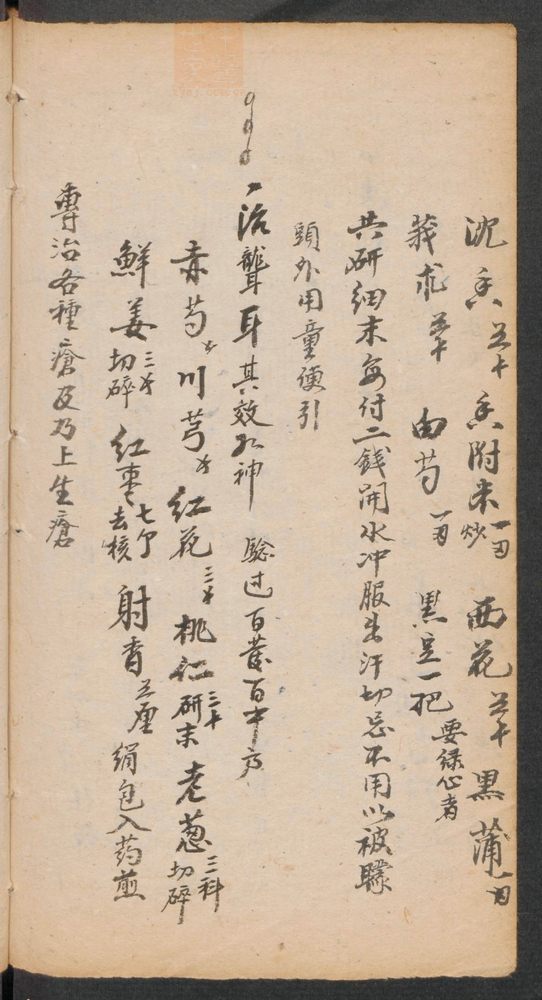 沉香 五十 香附米 炒 一両 西花 五十 黑蒲 一両
莪朮 五十 由芍 一両 黑豆一把 要綠心者
共研細末每付二錢開水冲服出汗切忌不用以被矇
頭外用童便引
一治聾耳其效如神 驗过百發百中方
赤芍 川芎 红花 三才 桃仁 三十 研末 老葱 三科 切碎
鮮姜 三才 切碎 红枣 七个 去核 射香 五厘 绢包入药煎
專治各種瘡及乃上生瘡